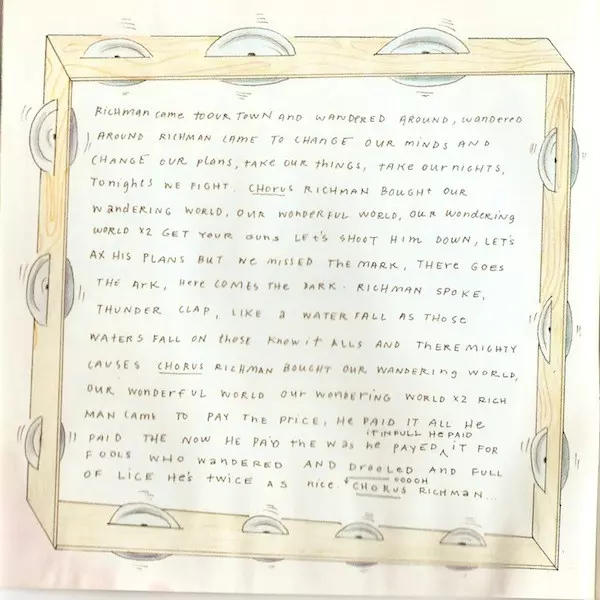 RICHMAN came to OUR TOWN AND WANDERED AROUND, wandered
AROUND RICHMAN CAME TO CHANGE OUR MINDS AND
CHANGE OUR plans, take OUR THINGS, TAKE OUR NIGHTS,
Tonights WE FIGHT. CHORUS RICHMAN BOUGHT OUR
wandering WORLD, OUR WONDERFUL WORLD, OUR Wondering
WORLD X2 GET YOUR Guns LET'S SHOOT HIM DOWN, LET'S
AX HIS PLANS BUT WE MISSED THE MARK, THERE GOES
THE ARK, Here COMES THE DARK. RICHMAN SPOKE,
THUNDER CLAP, LIKE a WATERFALL AS THOSE
WATERS FALL ON those Know it ALLS AND THERE MIGHTY
CAUSES CHORUS RICHMAN BOUGHT OUR WANDERING WORLD,
OUR WONDERFUL WORLD OUR WONDERING WORLD X2 RICH
MAN CAME TO PAY THE PRICE, HE PAID IT ALL He
IT IN FULL HE PAID
PAID THE NOW HE PAID the WAS he PAYED ^ IT FOR
FOOLS WHO WANDERED AND DROOLED AND FULL
OF LICE He's TWICE AS nice. OOOOH
CHORUS RICHMAN...